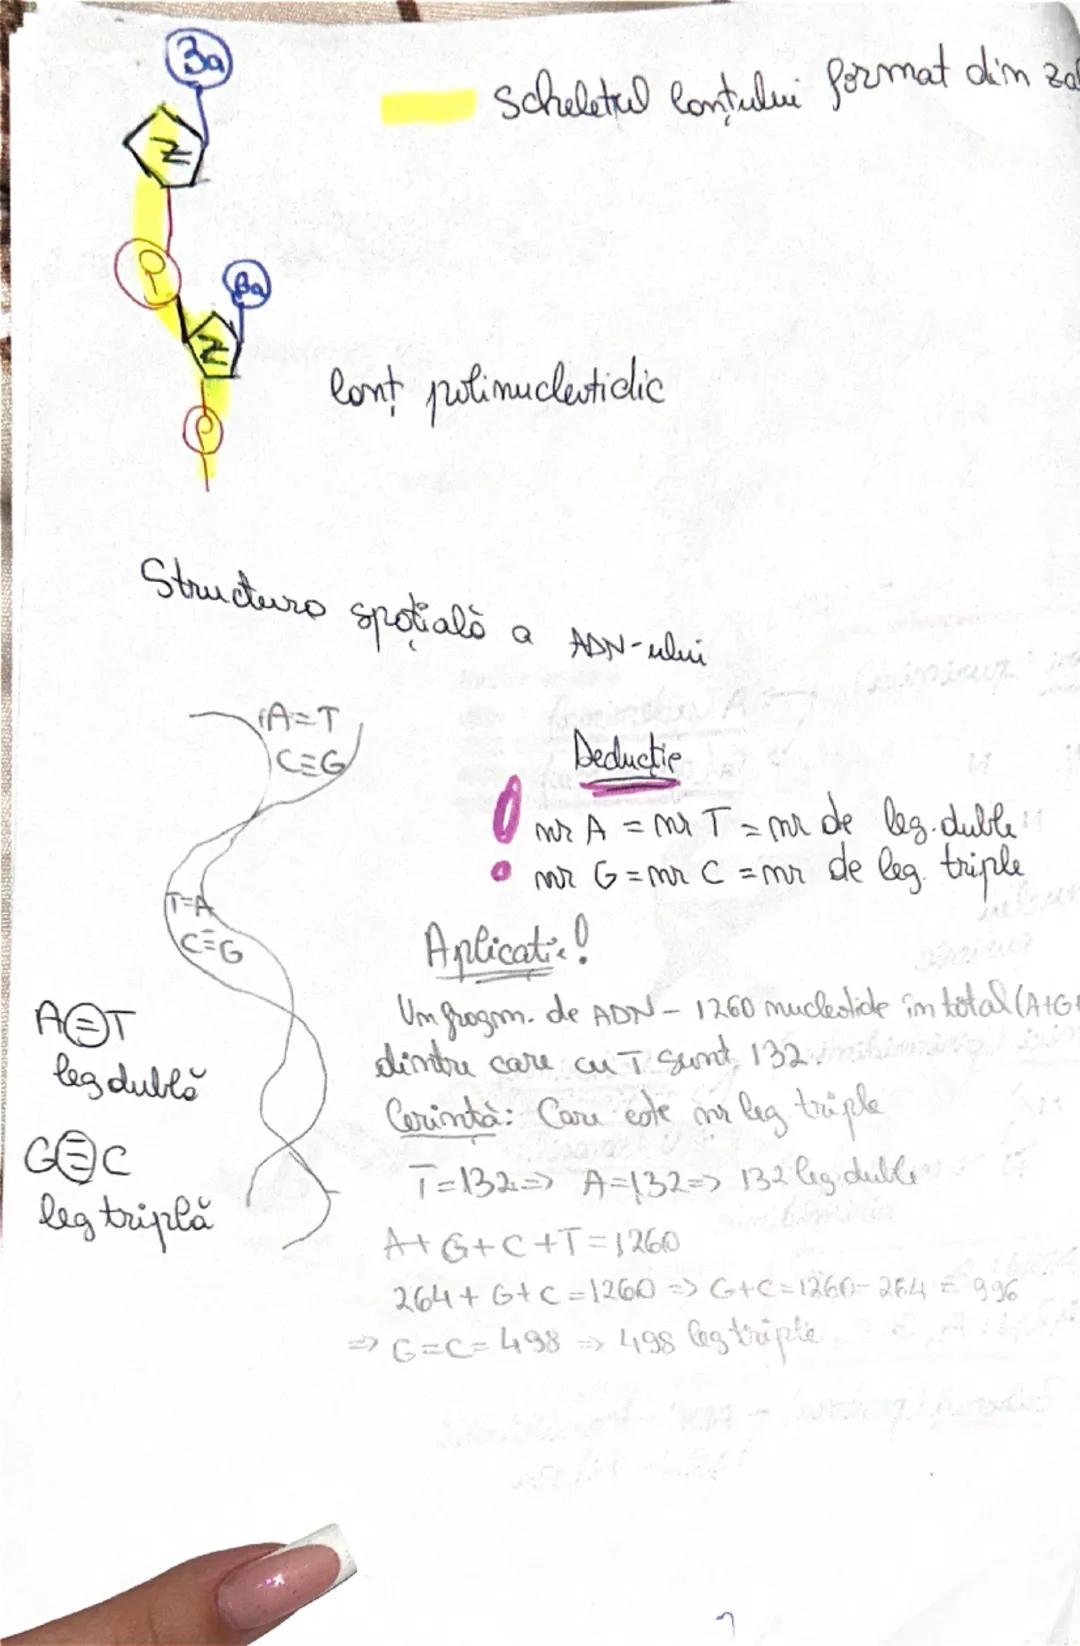 Ba
Z
P
Ba
Z
P
scheletul lanțului format din
lanț polinucleotidic
Structura spațială a ADN-ului
A=T
C≡G
T=A
C≡G
A=T
leg dublă
G≡C
leg triplă
Deducție
! nr A = nr T = nr de leg. duble
nr G = nr C = nr de leg. triple
Aplicație!
Un fragm. de ADN - 1260 nucleotide în total (A+G+
dintre care cu T sunt 132.
Cerință: Care este nr leg triple
T=132 => A=132 => 132 leg. duble
A+G+C+T=1260
264+G+C=1260 => G+C=1260-264=996
=> G=C=498 => 498 leg triple